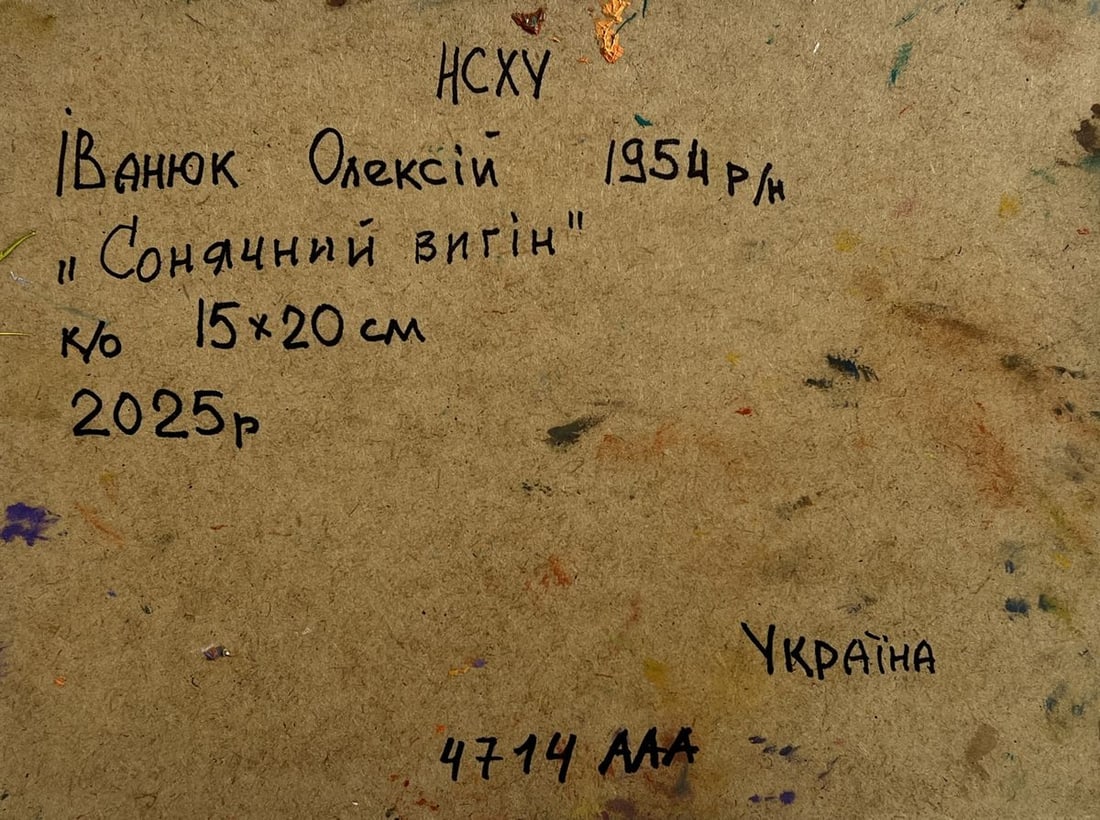 НСХУ
Іванюк Олексій 1954 р/н
„Сонячний вигін"
к/о 15×20 см
2025р
Україна
4714 ААА